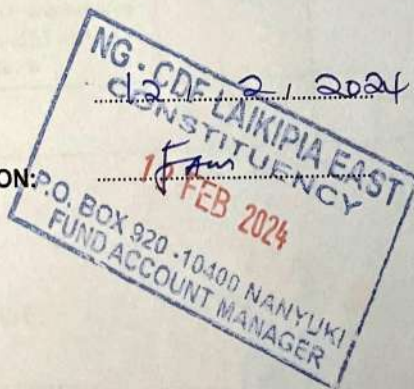 12 / 2 / 2024
NG - CDF LAIKIPIA EAST
CONSTITUENCY
ON:
FEB 2024
P.O. BOX 920 - 10400 NANYUKI
FUND ACCOUNT MANAGER